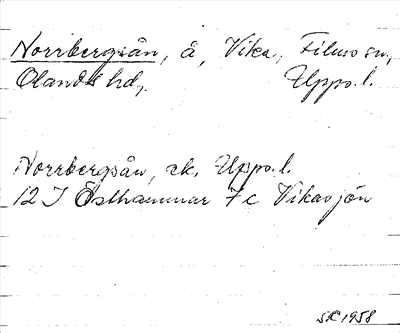 Norrbergsån, å, Vika, Films sn,
Olands hd, Upps. l.
Norrbergsån, ek. Upps. l.
12 I Östhammar 7c Vikasjön
SK 1958